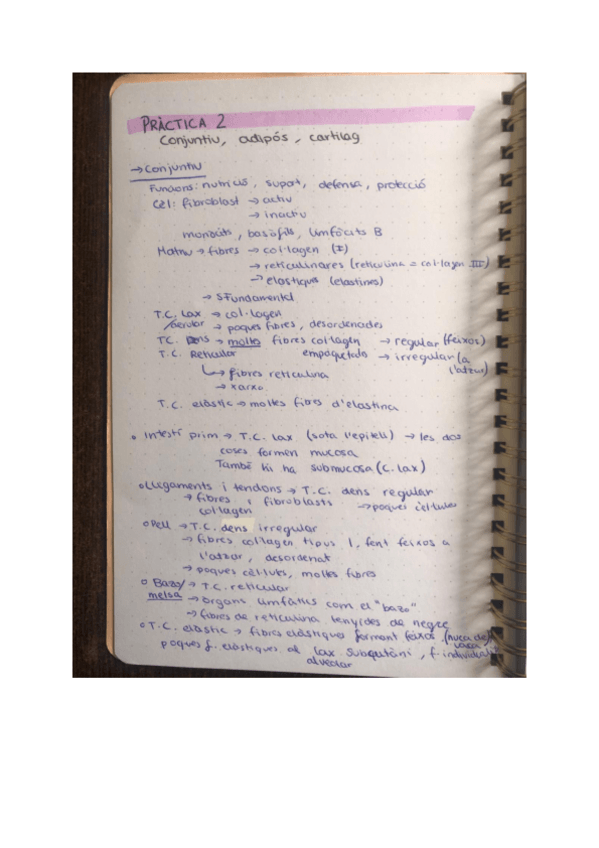 PRÀCTICA 2
Conjuntiu, adipós, cartilag
→ Conjuntiu
Funcions: nutrició, suport, defensa, protecció
Cèl: fibroblast → actiu
→ inactiu
monòcits, basòfils, limfòcits B
Matriu → fibres → col·lagen (I)
→ reticulinares (reticulina = col·lagen III)
→ elastiques (elastines)
→ S. Fundamental
T.C. Lax → col·lagen
/areolar → poques fibres, desordenades
T.C. Dens → moltes fibres col·lagen → regular (feixos)
empaquetada → irregular (a l'atzar)
T.C. Reticular
↳ fibres reticulina
→ xarxa
T.C. elàstic → moltes fibres d'elastina
• Intestí prim → T.C. lax (sota l'epiteli) → les dos
coses formen mucosa
També hi ha submucosa (C. lax)
• Lligaments i tendons → T.C. dens regular
→ fibres i fibroblasts → poques cèl·lules
collagen
• Pell → T.C. dens irregular
→ fibres collagen tipus 1, fent feixos a
l'atzar, desordenat
→ poques cèl·luls, moltes fibres
• Bazo/ → T.C. reticular
melsa → organs limfàtics com el "bazo"
→ fibres de reticulina tenyides de negre
• T.C. elàstic → fibra elàstiques formant feixos. (nuca de vaca)
poques f. elàstiques al lax subcutàni, f. individual
alveolar